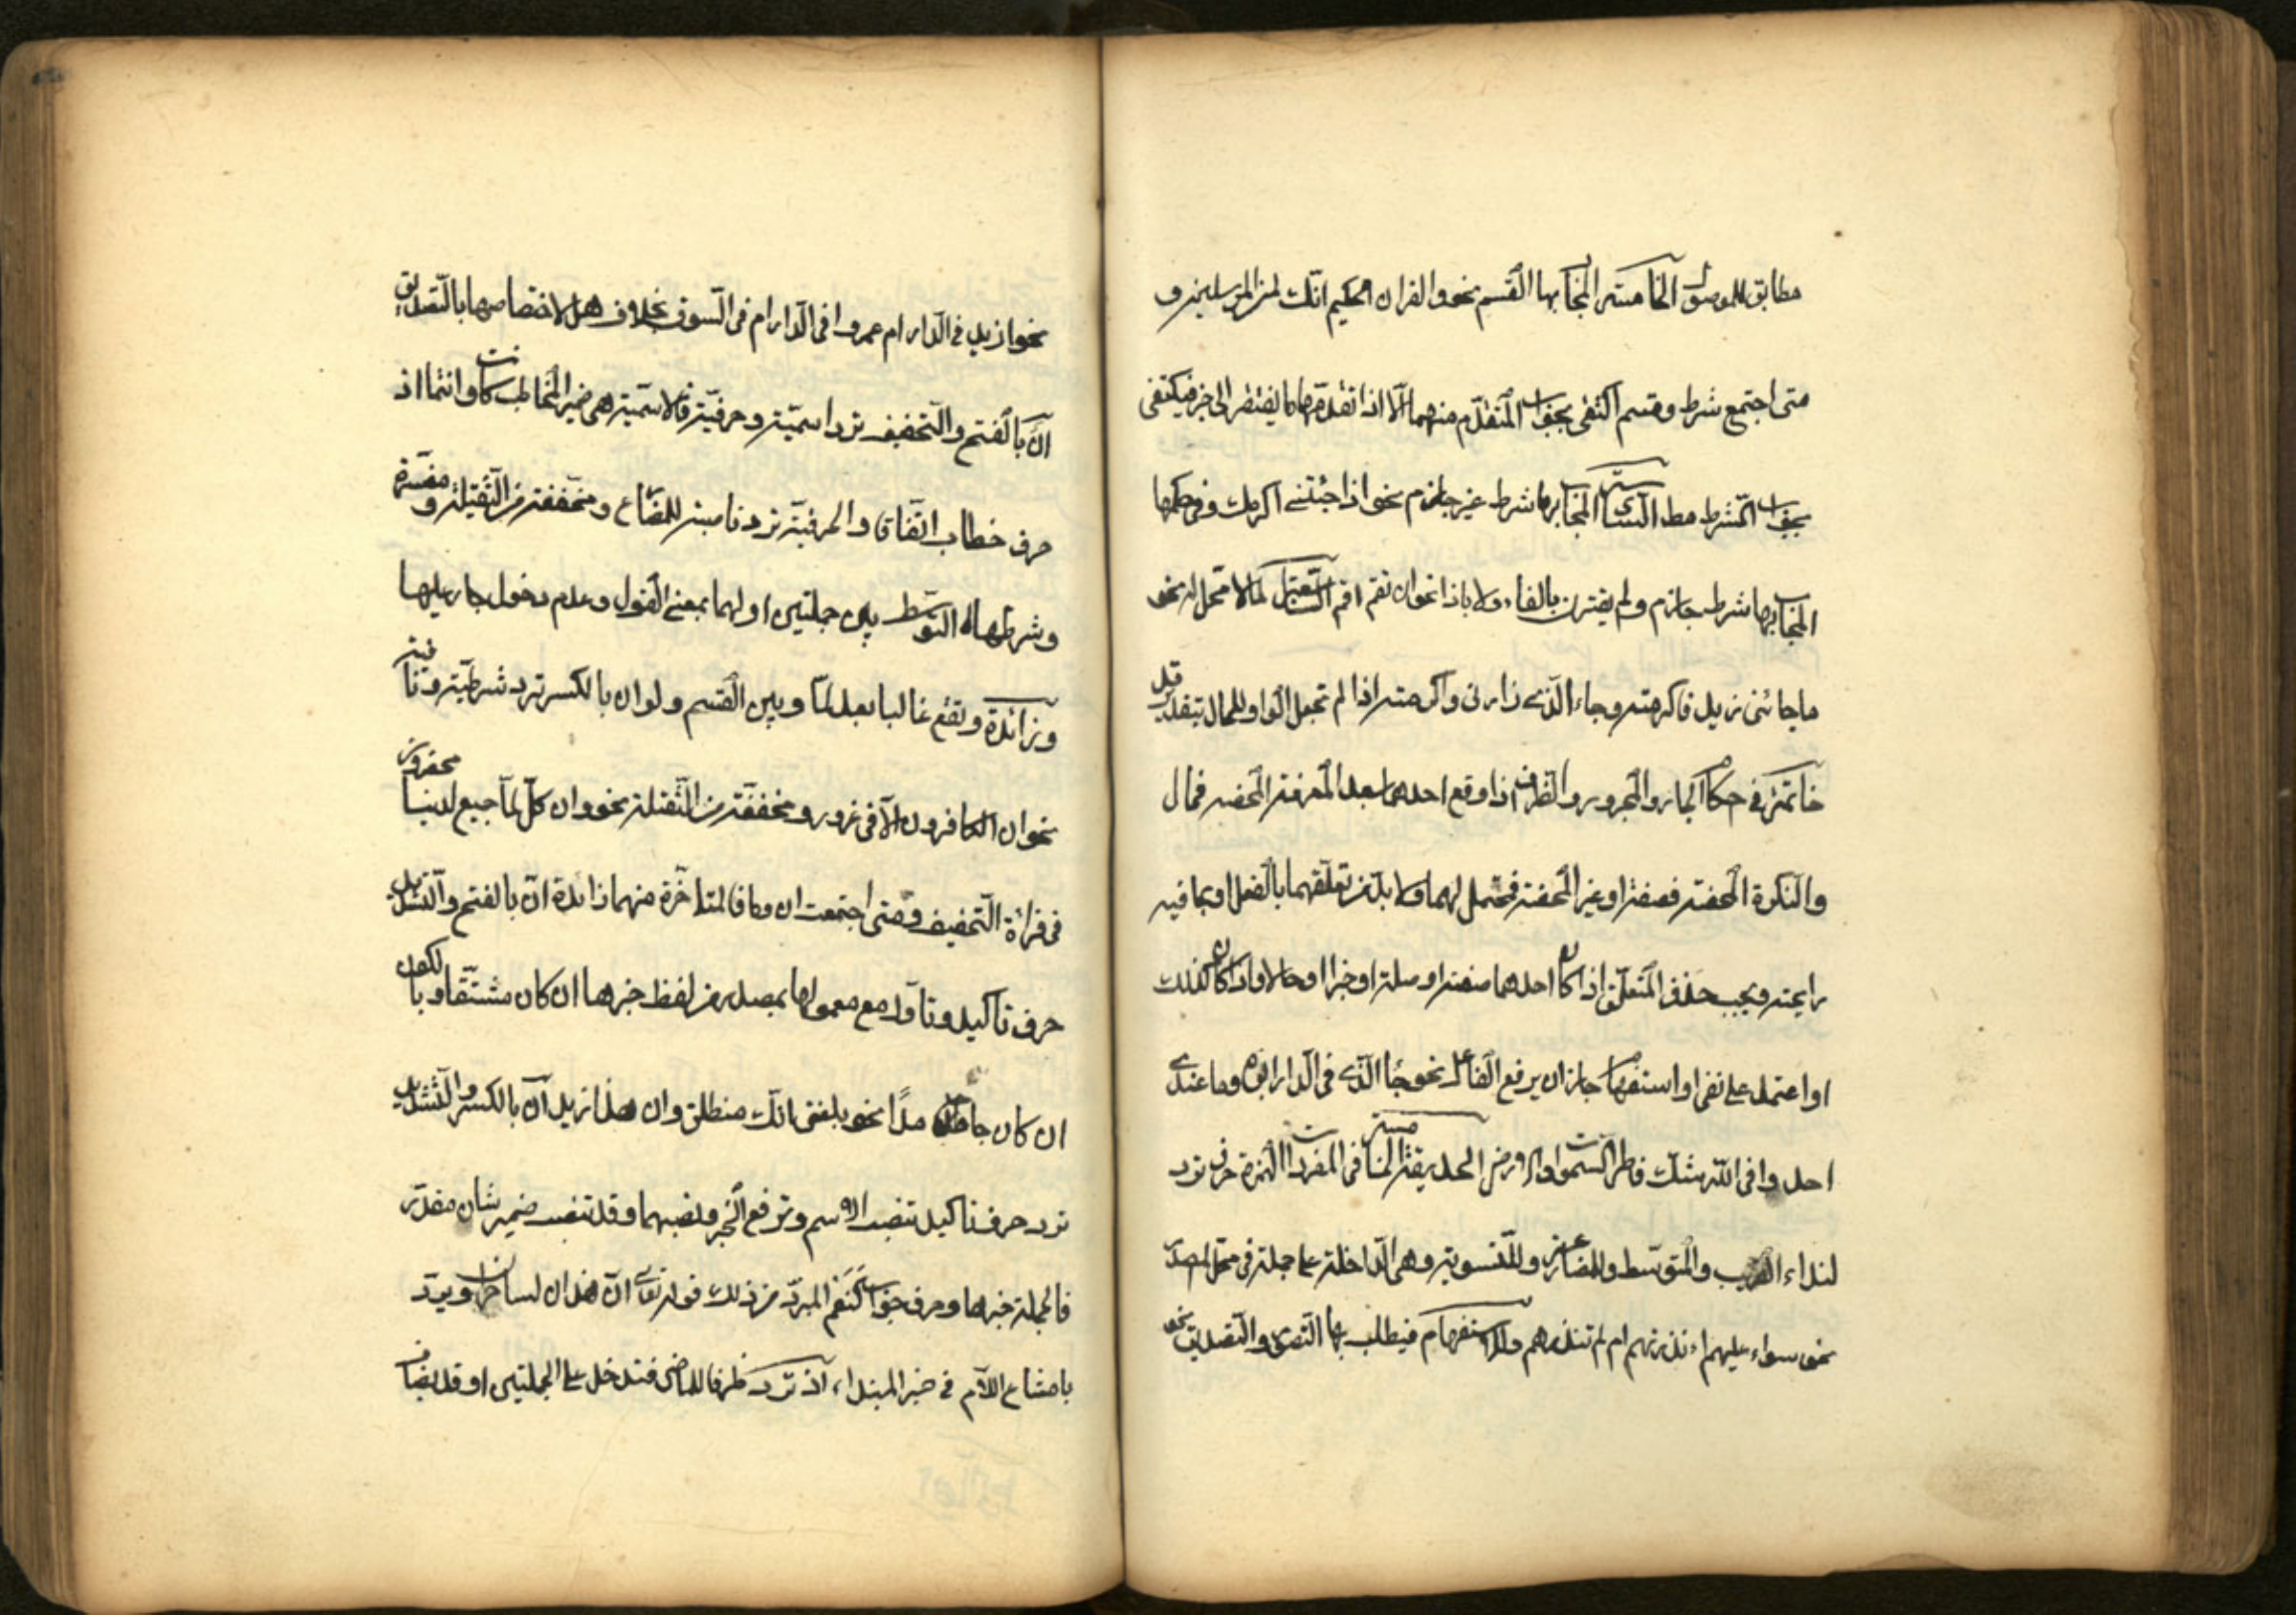 مطابق للموصول الخامسة المجاب بها القسم نحو والقران الحكيم انك لمن المرسلين و
متى اجتمع شرط وقسم اكتفى بجواب المتقدم منهما الا اذا تقدمهما ما يفتقر الى خبر فيكتفى
بجواب الشرط مط السادسة المجاب بها شرط غير جازم نحو اذا جئتنى اكرمك وفى حكمها
المجاب بها شرط جازم ولم يقترن بالفاء ولا باذا نحو ان تقم اقم السابعة التابعة لما لا محل له نحو
ما جائنى زيد فاكرمته وجاء الذى زارنى واكرمته اذا لم تجعل الواو للحال بتقدير قد
خاتمة فى حكم الجار والمجرور والظرف اذا وقع احدهما بعد المعرفة المحضة فحال
والنكرة المحضة فصفة او غير المحضة فمحتمل لهما ولا بد من تعلقهما بالفعل او بما فيه
رايحته ويجب حذف المتعلق اذا كان احدهما صفة او صلة او خبرا او حالا واذا كان كذلك
او اعتمد على نفى او استفهام جاز ان يرفع الفاعل نحو جاء الذى فى الدار ابوه وما عندى
احد وافى الله شك فاطر السموات والارض الحديقة الخامسة فى المفردات الهمزة حرف ترد
لنداء القريب والمتوسط وللمضارعة وللتسوية وهى الداخلة على جملة فى محل المصدر
نحو سواء عليهم ءانذرتهم ام لم تنذرهم وللاستفهام فيطلب بها التصور والتصديق نحو
نحو ازيد فى الدار ام عمرو افى الدار ام فى السوق بخلاف هل لاختصاصها بالتصديق
ان بالفتح والتخفيف ترد اسمية وحرفية فالاسمية هى ضمير المخاطب كانت وانتما اذ
حرف خطاب اتفاقا والحرفية ترد ناصبة للمضارع ومخففة من الثقيلة ومفسرة
وشرطها التوسط بين جملتين اولهما بمعنى القول وعدم دخول جار عليها
وزائدة وتقع غالبا بعد لما وبين القسم ولو ان بالكسر ترد شرطية ونافية
نحو ان الكافرون الا فى غرور ومخففة من الثقيلة نحو وان كل لما جميع لدينا محضرون
فى قراءة التخفيف ومتى اجتمعت ان وما فالمتاخرة منهما زائدة ان بالفتح والتشديد
حرف تاكيد وتاول مع معمولها بمصدر من لفظ خبرها ان كان مشتقا وبالكون
ان كان جامدا نحو بلغنى انك منطلق وان هذا زيد ان بالكسر والتشديد
ترد حرف تاكيد تنصب الاسم وترفع الخبر ونصبهما وقد تنصب ضمير شان مقدر
فالجملة خبرها وحرف جواب كنعم المبرد من ذلك قوله تعالى ان هذان لساحران ويرد
بامتناع اللام فى خبر المبتداء اذ ترد ظرفا للماضى فتدخل على الجملتين وقد يضاف